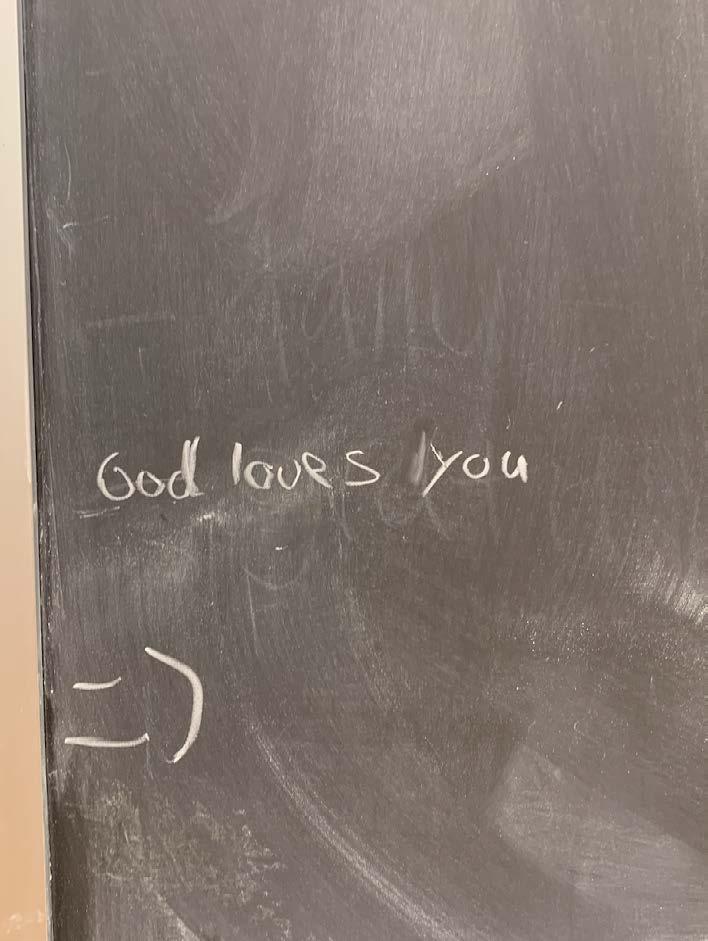 God loves you
=)